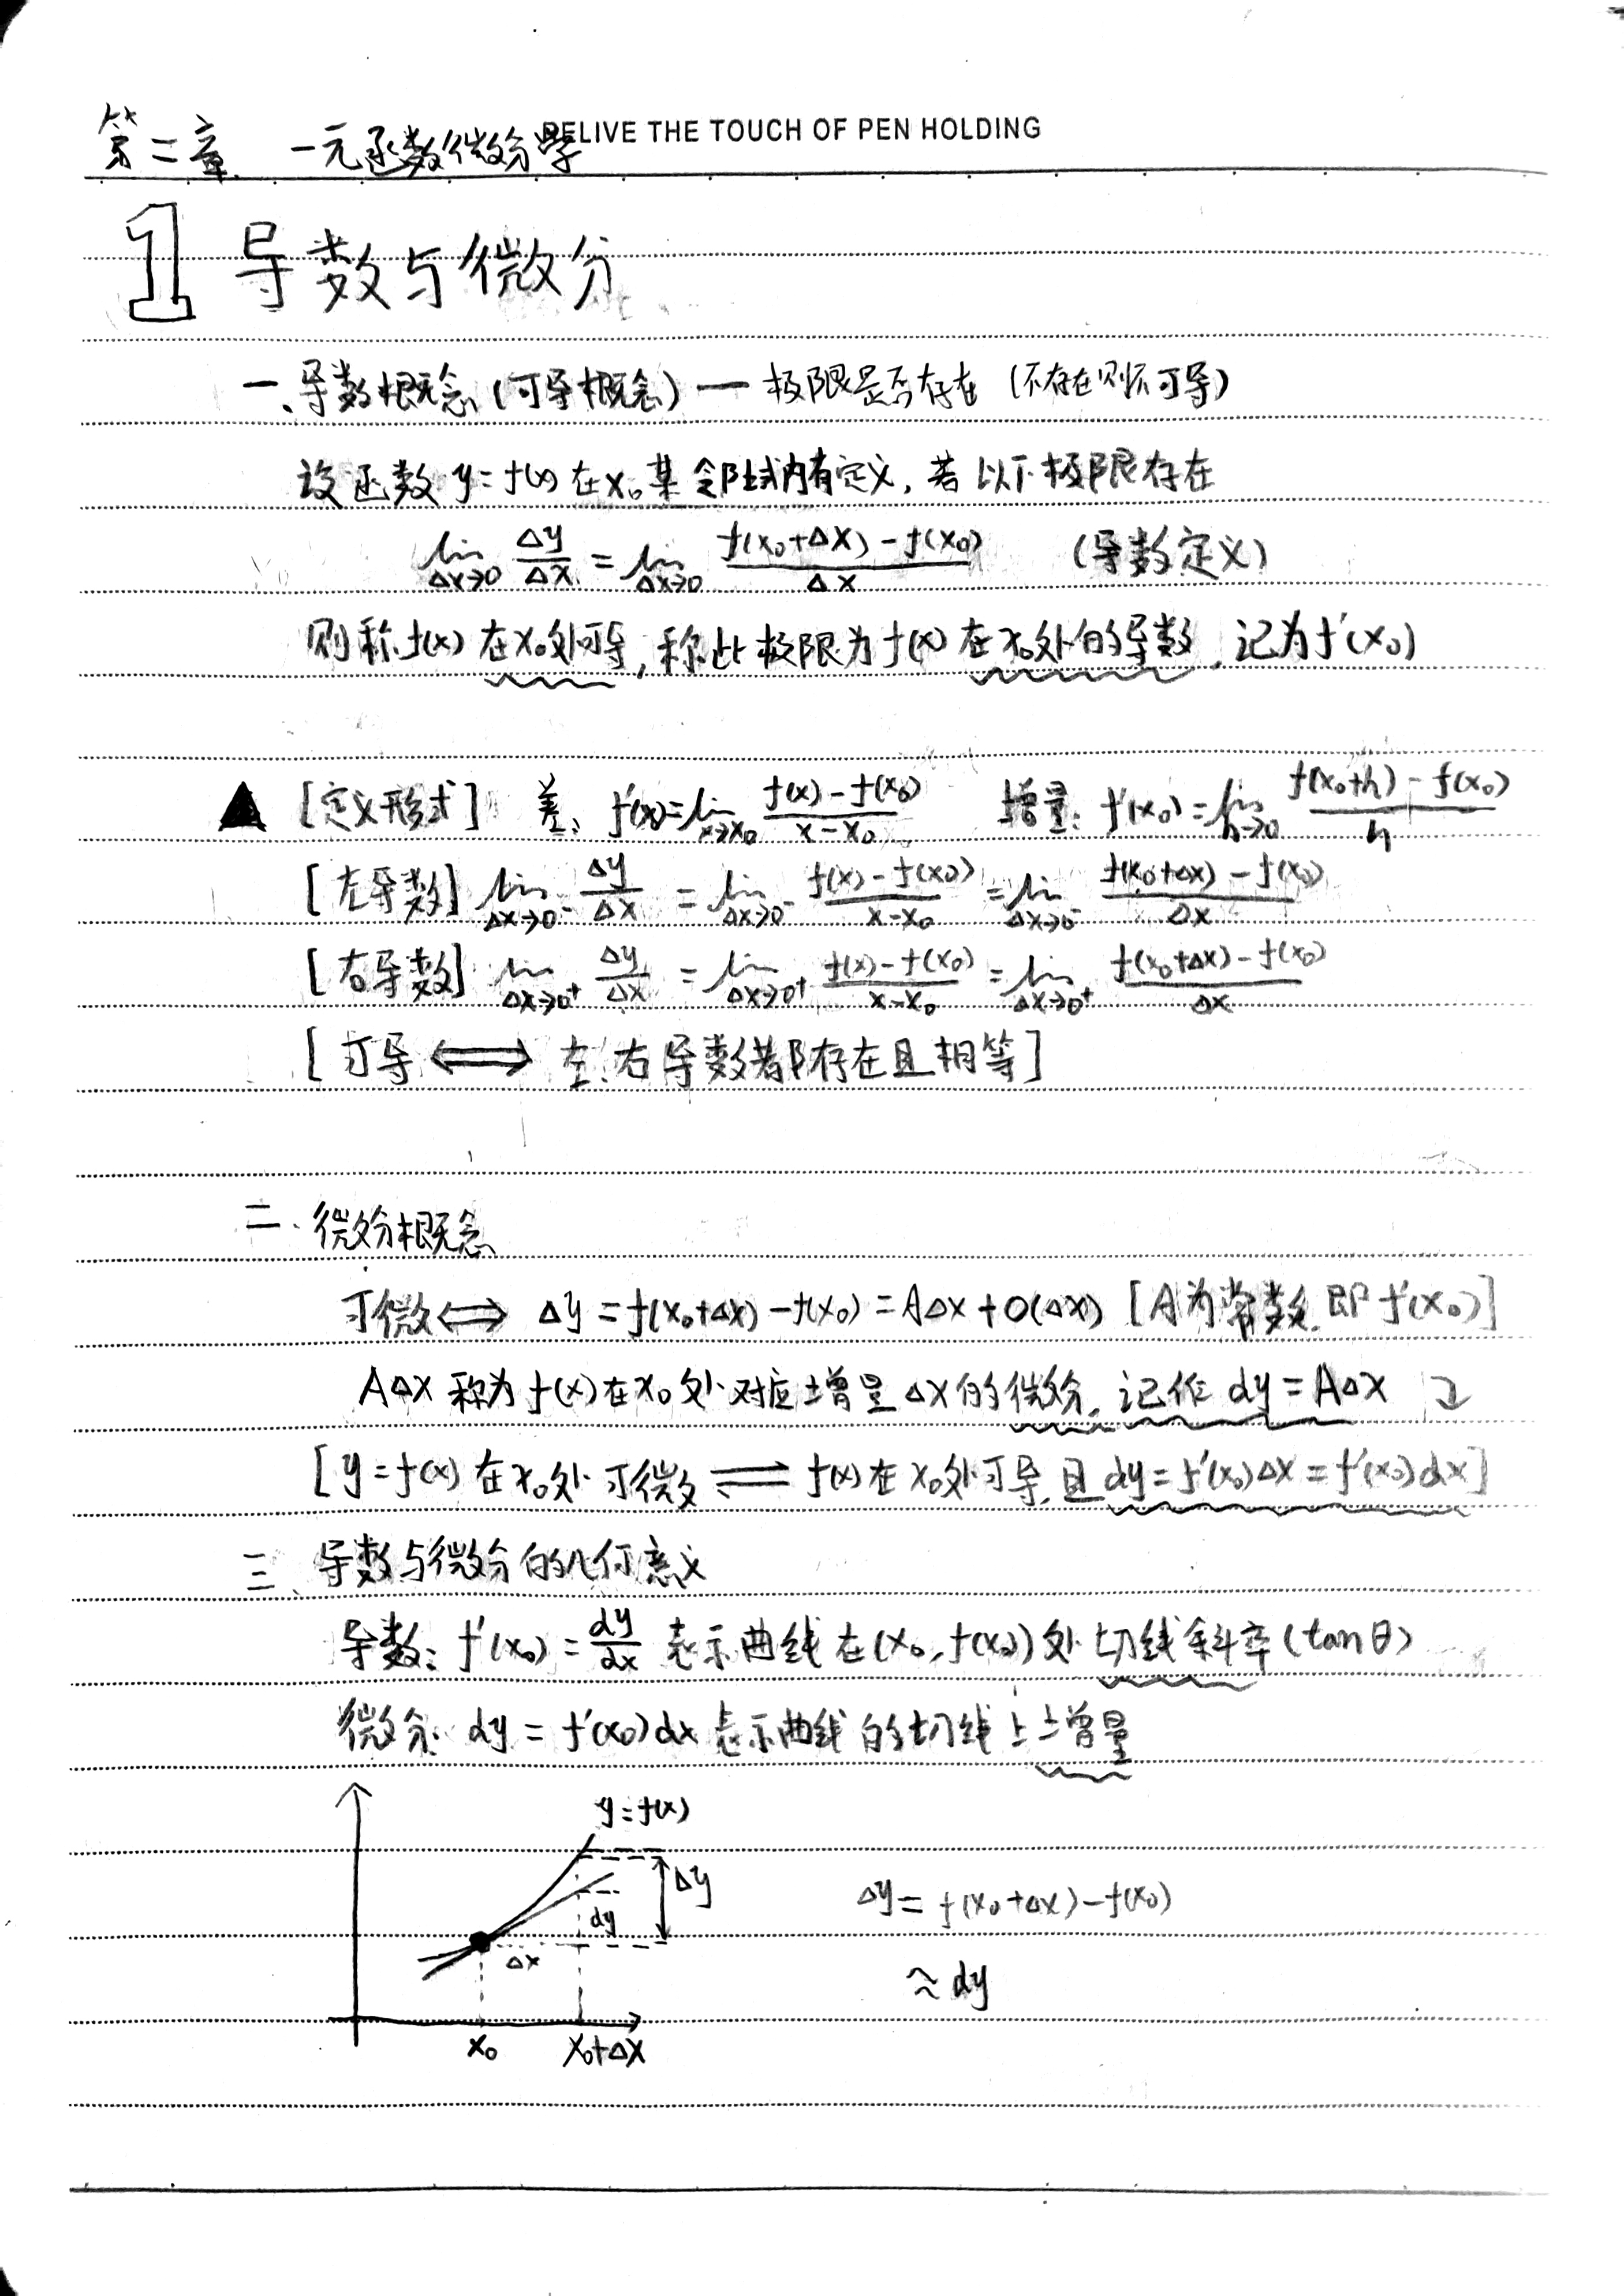 RELIVE THE TOUCH OF PEN HOLDING
第二章 一元函数微分学
1 导数与微分
一、导数概念(可导概念) — 极限是否存在 (不存在则不可导)
设函数 y=f(x) 在 x₀ 某邻域内有定义, 若以下极限存在
lim Δx→0 Δy/Δx = lim Δx→0 (f(x₀+Δx)-f(x₀))/Δx (导数定义)
则称 f(x) 在 x₀ 处可导, 称此极限为 f(x) 在 x₀ 处的导数, 记为 f'(x₀)
▲ [定义形式] 差: f'(x)=lim x→x₀ (f(x)-f(x₀))/(x-x₀) 增量: f'(x₀)=lim h→0 (f(x₀+h)-f(x₀))/h
[左导数] lim Δx→0⁻ Δy/Δx = lim Δx→0⁻ (f(x)-f(x₀))/(x-x₀) = lim Δx→0⁻ (f(x₀+Δx)-f(x₀))/Δx
[右导数] lim Δx→0⁺ Δy/Δx = lim Δx→0⁺ (f(x)-f(x₀))/(x-x₀) = lim Δx→0⁺ (f(x₀+Δx)-f(x₀))/Δx
[可导 ⟺ 左、右导数都存在且相等]
二、微分概念
可微 ⟺ Δy = f(x₀+Δx)-f(x₀) = AΔx+o(Δx) [A为常数, 即 f'(x₀)]
AΔx 称为 f(x) 在 x₀ 处对应增量 Δx 的微分, 记作 dy=AΔx
[y=f(x) 在 x₀ 处可微 ⇌ f(x) 在 x₀ 处可导, 且 dy=f'(x₀)Δx=f'(x₀)dx]
三、导数与微分的几何意义
导数: f'(x₀)=dy/dx 表示曲线在(x₀, f(x₀))处切线斜率(tanθ)
微分: dy=f'(x₀)dx 表示曲线的切线上增量
y=f(x)
Δy
dy
Δx
x₀ x₀+Δx
Δy=f(x₀+Δx)-f(x₀)
≈dy